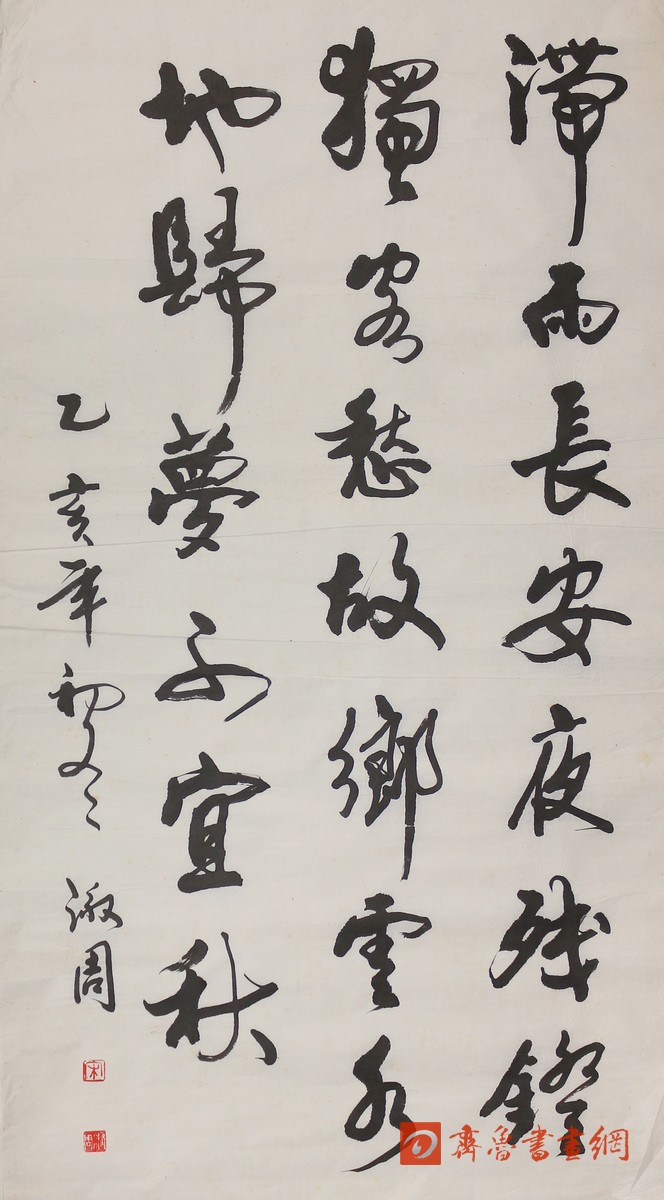 滞雨長安夜残鐙
獨客愁故鄉雲水
地歸夢不宜秋
乙亥年初冬 淑周
齊魯書畫網